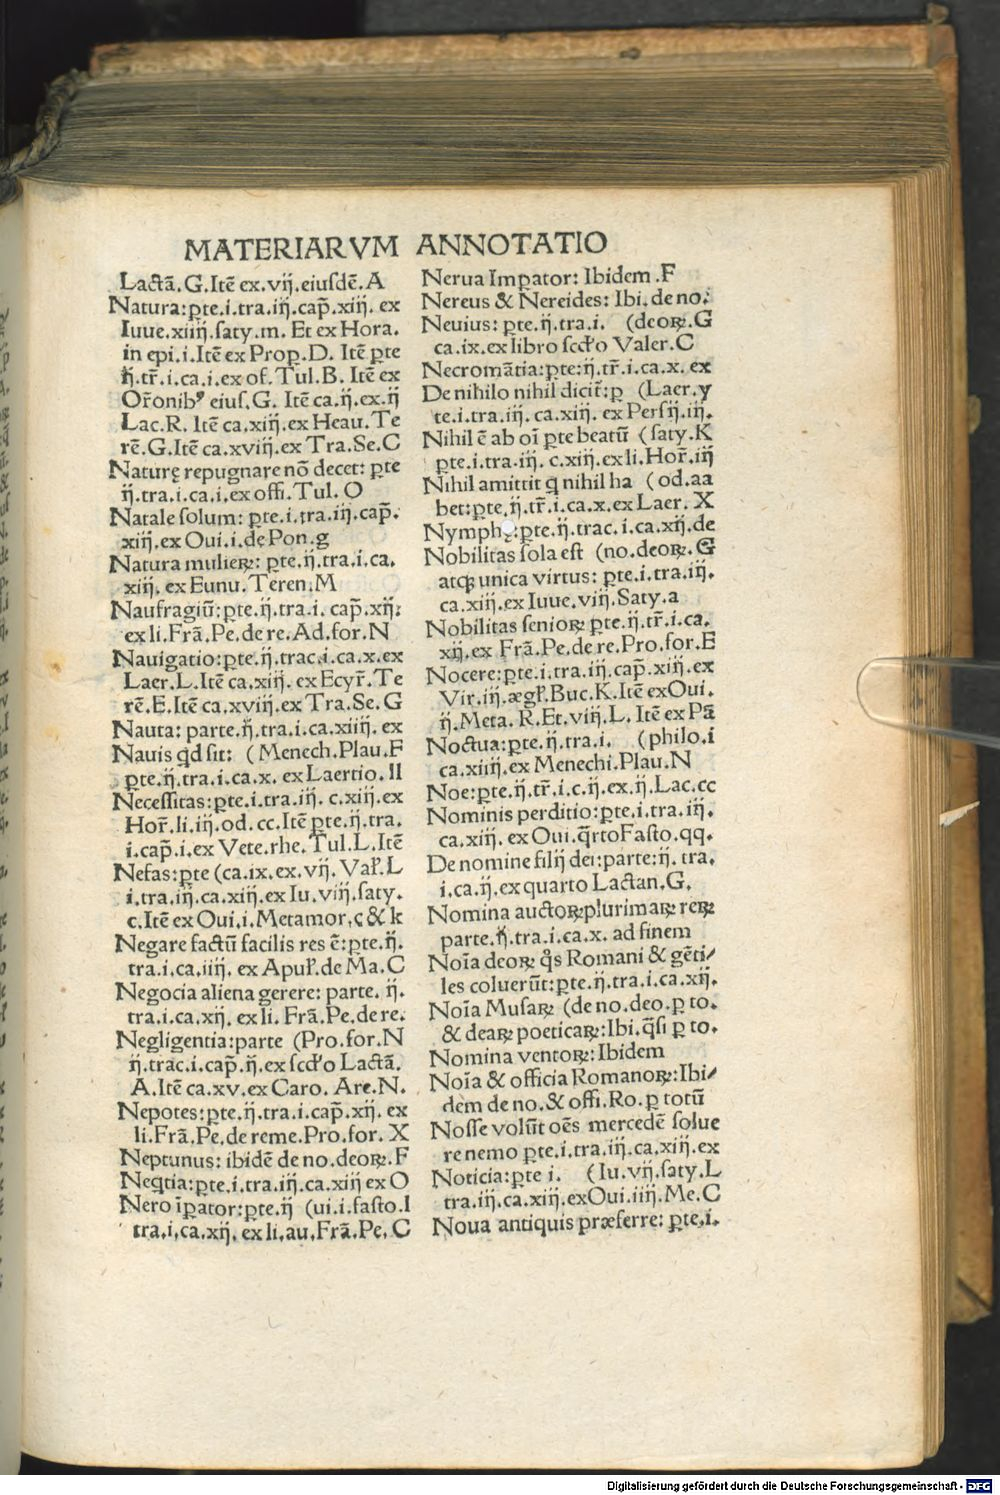 MATERIARVM ANNOTATIO
Lactã.G.Itẽ ex.vij.eiusdẽ.A
Natura:ꝑte.i.tra.iij.cap̃.xiij.ex
Iuue.xiiij.saty.m. Et ex Hora.
in epi.i.Itẽ ex Prop.D. Itẽ ꝑte
ij.tr̃.i.ca.i.ex of.Tul.B. Itẽ ex
Or̃onibꝰ eius.G. Itẽ ca.ij.ex.ij
Lac.R. Itẽ ca.xiij.ex Heau.Te
rẽ.G.Itẽ ca.xviij.ex Tra.Se.C
Naturę repugnare nõ decet: ꝑte
ij.tra.i.ca.i.ex offi.Tul.O
Natale solum: ꝑte.i.tra.iij.cap̃.
xiij.ex Oui.i.de Pon.g
Natura mulieꝝ: ꝑte.ij.tra.i.ca.
xiij.ex Eunu.Teren.M
Naufragiũ:ꝑte.ij.tra.i.cap̃.xij:
ex li.Frã.Pe.de re.Ad.for.N
Nauigatio:ꝑte.ij.trac.i.ca.x.ex
Laer.L.Itẽ ca.xiij. ex Ecyr̃.Te
rẽ.E.Itẽ ca.xviij.ex Tra.Se.G
Nauta: parte.ij.tra.i.ca.xiiij.ex
Nauis q̃d sit: (Menech.Plau.F
ꝑte.ij.tra.i.ca.x. ex Laertio.ll
Necessitas:ꝑte.i.tra.iij. c.xiij.ex
Hor̃.li.iij.od.cc.Itẽ ꝑte.ij.tra.
i.cap̃.i.ex Vete.rhe.Tul.L.Itẽ
Nefas:ꝑte (ca.ix.ex.vij.Val̃.L
i.tra.iij.ca.xiij.ex Iu.viij.saty.
c.Itẽ ex Oui.i.Metamor.c & k
Negare factũ facilis res ẽ:ꝑte.ij.
tra.i.ca.iiij. ex Apul̃.de Ma.C
Negocia aliena gerere: parte. ij.
tra.i.ca.xij. ex li. Frã.Pe.de re.
Negligentia:parte (Pro.for.N
ij.trac.i.cap̃.ij.ex scd̃o Lactã.
A.Itẽ ca.xv.ex Caro. Are.N.
Nepotes:ꝑte.ij.tra.i.cap̃.xij. ex
li.Frã.Pe.de reme.Pro.for. X
Neptunus: ibidẽ de no.deoꝝ.F
Neq̃tia:ꝑte.i.tra.iij.ca.xiij ex O
Nero ĩꝑator:ꝑte.ij (ui.i.fasto.l
tra.i.ca.xij. ex li.au.Frã.Pe.C
Nerua Imꝑator: Ibidem.F
Nereus & Nereides: Ibi.de no.
Neuius: ꝑte.ij.tra.i. (deoꝝ.G
ca.ix.ex libro scd̃o Valer.C
Necromãtia:ꝑte:ij.tr̃.i.ca.x. ex
De nihilo nihil dicit̃:ꝑ (Laer.y
te.i.tra.iij. ca.xiij. ex Persij.iij.
Nihil ẽ ab oĩ ꝑte beatũ (saty.K
ꝑte.i.tra.iij. c.xiij.ex li.Hor̃.iij
Nihil amittit q̃ nihil ha (od.aa
bet:ꝑte.ij.tr̃.i.ca.x.ex Laer. X
Nymphę:ꝑte.ij.trac.i.ca.xij.de
Nobilitas sola est (no.deoꝝ.G
atqꝫ unica virtus: ꝑte.i.tra.iij.
ca.xiij.ex Iuue.viij.Saty.a
Nobilitas senioꝝ ꝑte.ij.tr̃.i.ca.
xij.ex Frã.Pe.de re.Pro.for.E
Nocere:ꝑte.i.tra.iij.cap̃.xiij.ex
Vir.iij.ægl̃.Buc.K.Itẽ ex Oui.
ij.Meta. R.Et.viij.L. Itẽ ex Pã
Noctua:ꝑte.ij.tra.i. (philo.i
ca.xiiij.ex Menechi.Plau.N
Noe:ꝑte.ij.tr̃.i.c.ij.ex.ij.Lac.cc
Nominis perditio:ꝑte.i.tra.iij.
ca.xiij. ex Oui.q̃rto Fasto.qq.
De nomine filij dei:parte:ij. tra.
i.ca.ij.ex quarto Lactan.G.
Nomina auctoꝝ plurimaꝝ reꝝ
parte.ij.tra.i.ca.x. ad finem
Noĩa deoꝝ q̃s Romani & gẽti/
les coluerũt:ꝑte.ij.tra.i.ca.xij.
Noĩa Musaꝝ (de no.deo.ꝑ to.
& deaꝝ poeticaꝝ:Ibi.q̃si ꝑ to.
Nomina ventoꝝ: Ibidem
Noĩa & officia Romanoꝝ:Ibi/
dem de no.& offi.Ro.ꝑ totũ
Nosse volũt oẽs mercedẽ solue
re nemo ꝑte.i.tra.iij.ca.xiij.ex
Noticia:ꝑte i. (Iu.vij.saty.L
tra.iij.ca.xiij.ex Oui.iiij.Me.C
Noua antiquis præferre: ꝑte.i.
Digitalisierung gefördert durch die Deutsche Forschungsgemeinschaft - DFG